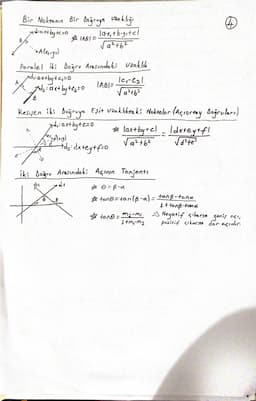 Bir Noktanın Bir Doğruya Uzaklığı
4
d: ax+by+c=0
|AB| = |ax₁+by₁+c| / √a²+b²
A(x₁,y₁)
B
Paralel İki Doğru Arasındaki Uzaklık
d₁: ax+by+c₁=0
d₂: ax+by+c₂=0
|AB| = |c₁-c₂| / √a²+b²
A
B
Kesişen İki Doğruya Eşit Uzaklıktaki Noktalar (Açıortay Doğruları)
d₁: ax+by+c=0
|ax+by+c| / √a²+b² = |dx+ey+f| / √d²+e²
d₂: dx+ey+f=0
İki Doğru Arasındaki Açının Tanjantı
d₂ d₁
θ = β-α
tanθ = tan(β-α) = tanβ-tanα / 1+tanβ.tanα
tanθ = m₂-m₁ / 1+m₁.m₂ Negatif çıkarsa geniş açı,
pozitif çıkarsa dar açıdır.